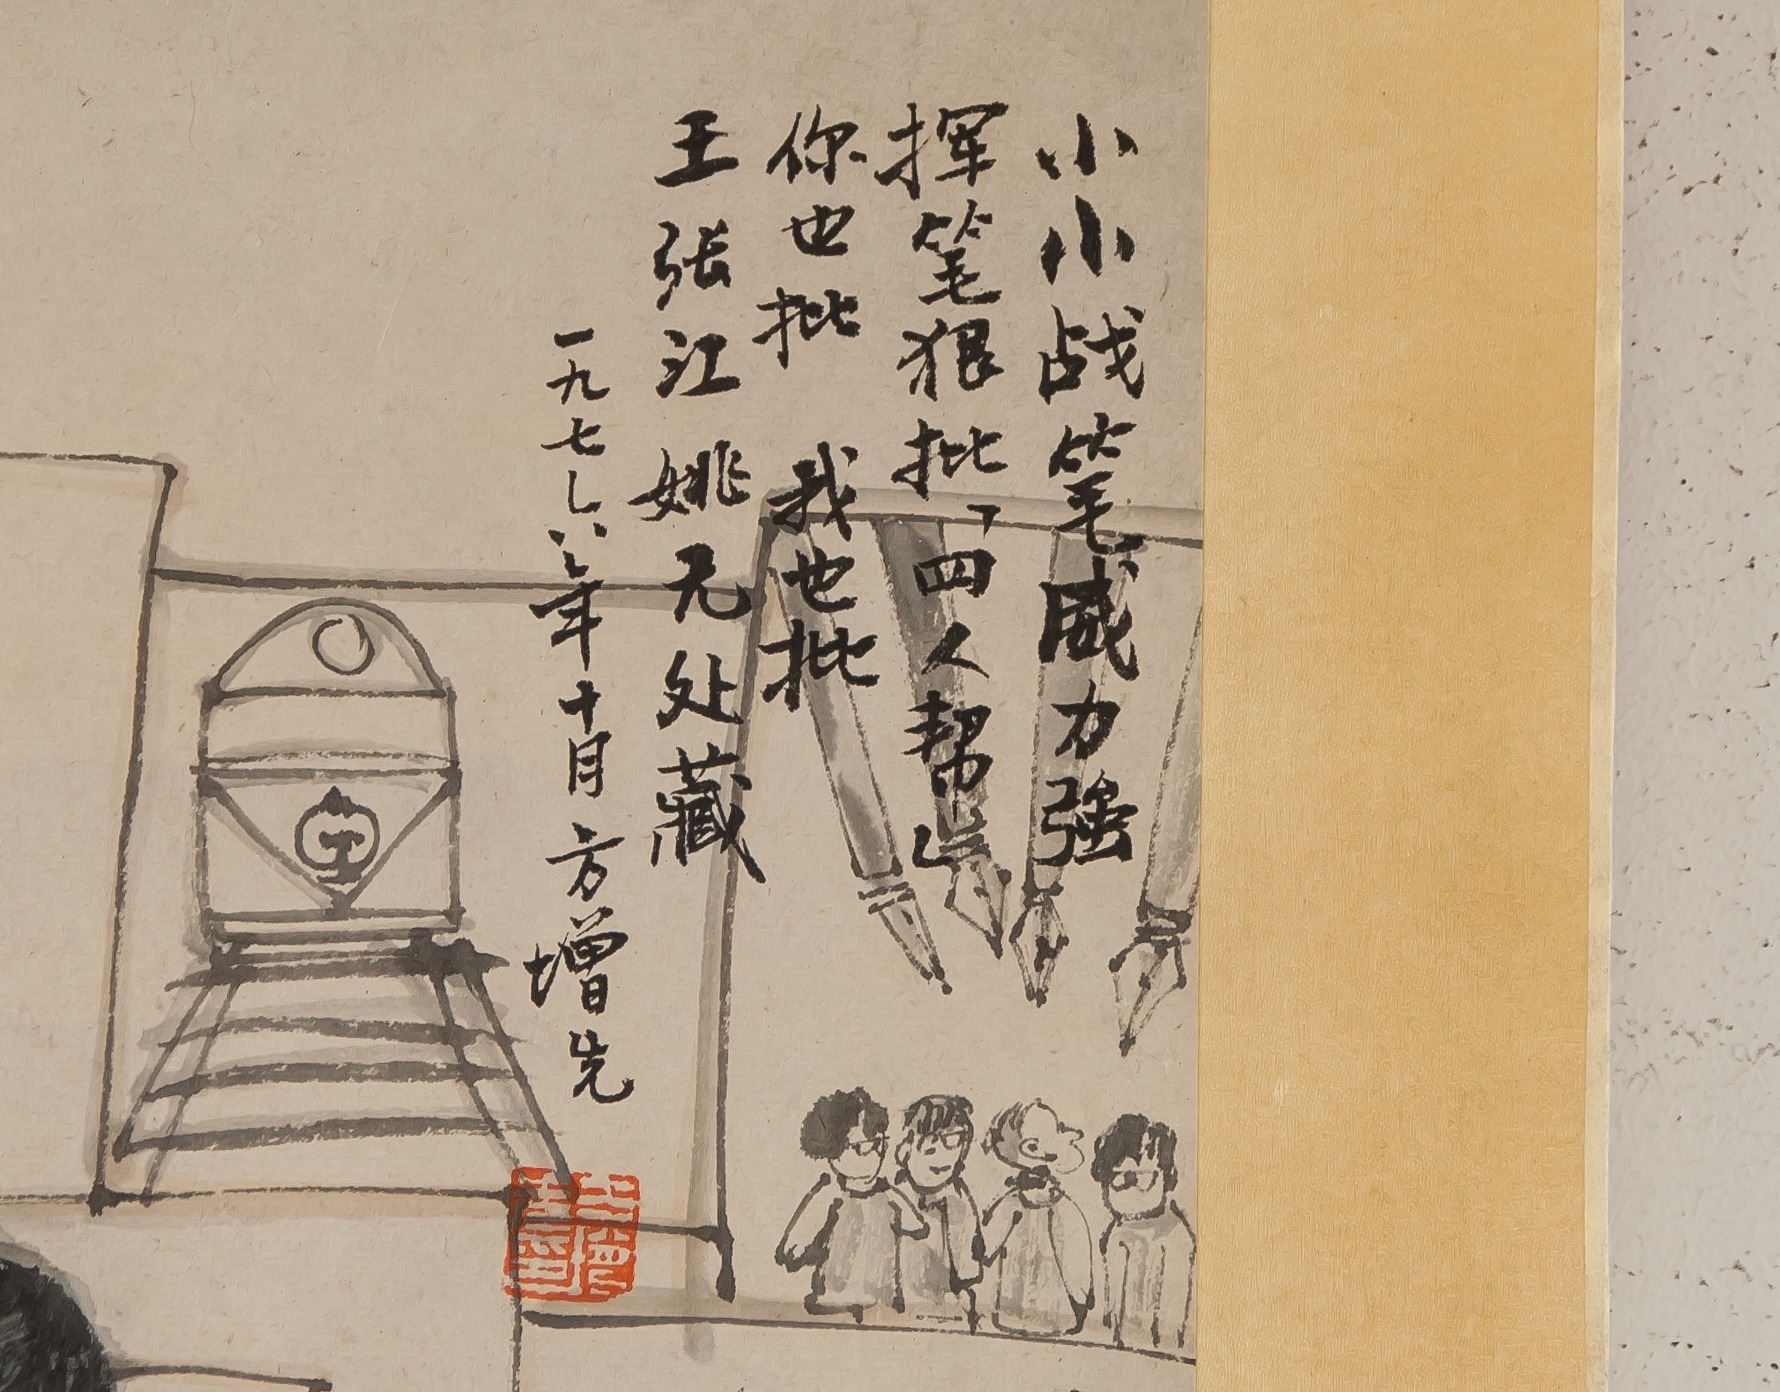 小小战笔威力强
挥笔狠批「四人帮」
你也批 我也批
王张江姚无处藏
一九七六年十月 方增先